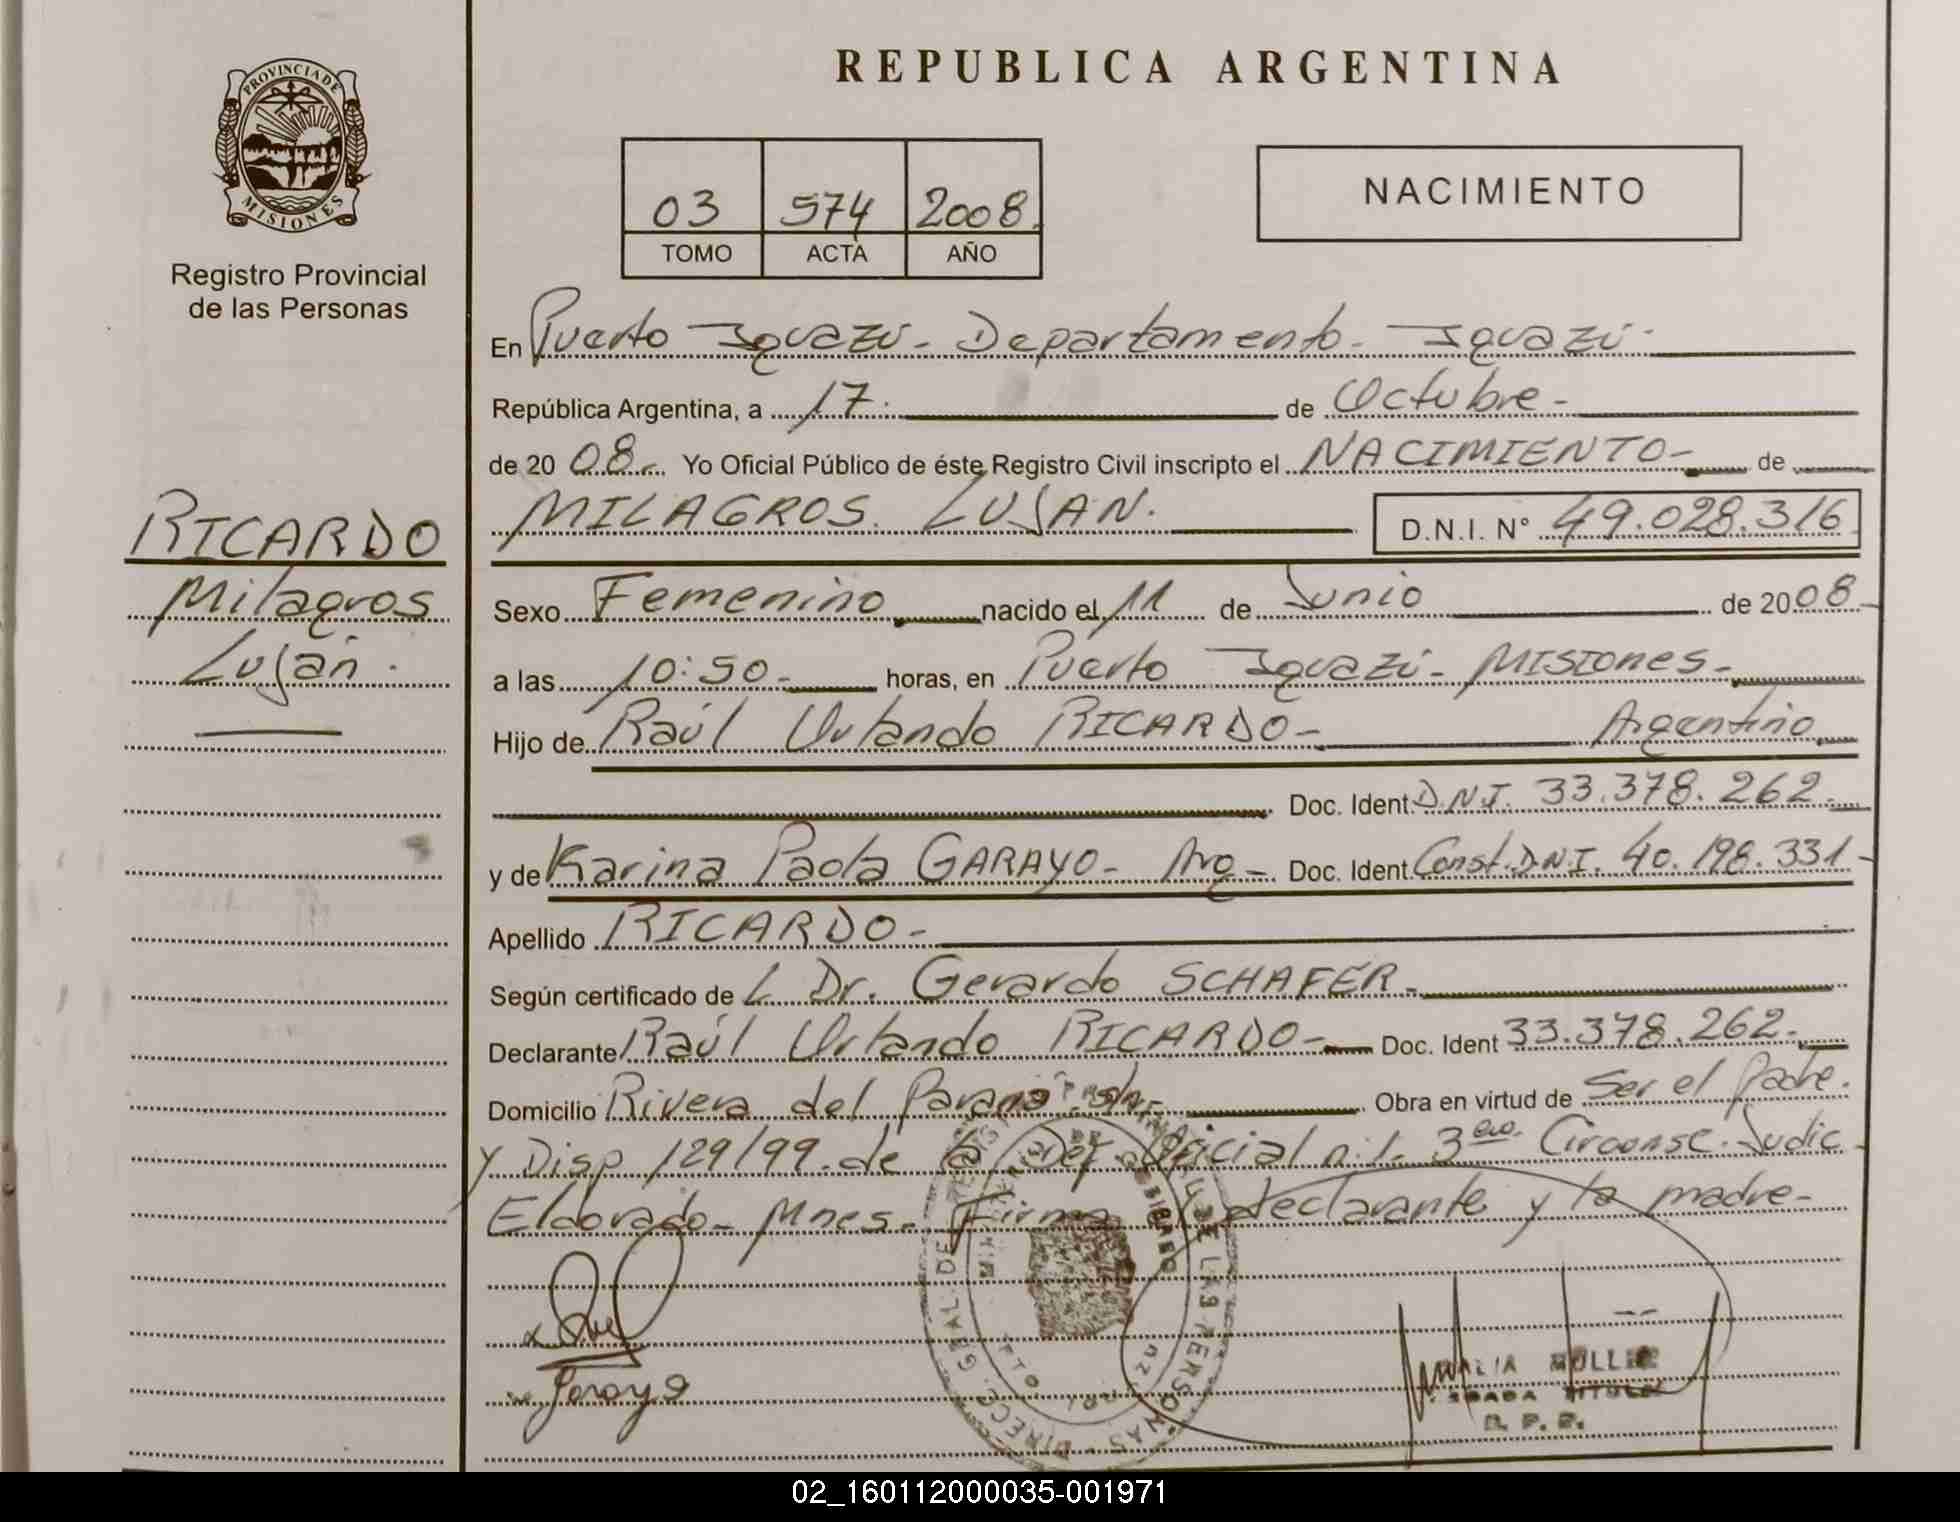 PROVINCIA DE MISIONES
Registro Provincial
de las Personas
RICARDO
Milagros
Luján.
REPUBLICA ARGENTINA
03 574 2008.
TOMO ACTA AÑO
NACIMIENTO
En Puerto Iguazú - Departamento - Iguazú -
República Argentina, a 17. de Octubre -
de 20 08 - Yo Oficial Público de éste Registro Civil inscripto el NACIMIENTO - de
MILAGROS LUJAN. D.N.I. N° 49.028.316
Sexo Femenino nacido el 11 de Junio de 2008 -
a las 10:50 - horas, en Puerto Iguazú - MISIONES -
Hijo de Raúl Orlando RICARDO - Argentino
Doc. Ident. D.N.I. 33.378.262 -
y de Karina Paola GARAYO - Arg - Doc. Ident. Const. D.N.I. 40.198.331 -
Apellido RICARDO -
Según certificado de L Dr. Gerardo SCHAFER -
Declarante Raúl Orlando RICARDO - Doc. Ident 33.378.262 -
Domicilio Rivera del Paraná Obra en virtud de Ser el Padre.
y Disp 129/99. de la Def Oficial n: 1. 3era. Circunsc. Judic
Eldorado - Mnes - Firma declarante y la madre -
Garayo
MULLER
R. P. P.
02_160112000035-001971